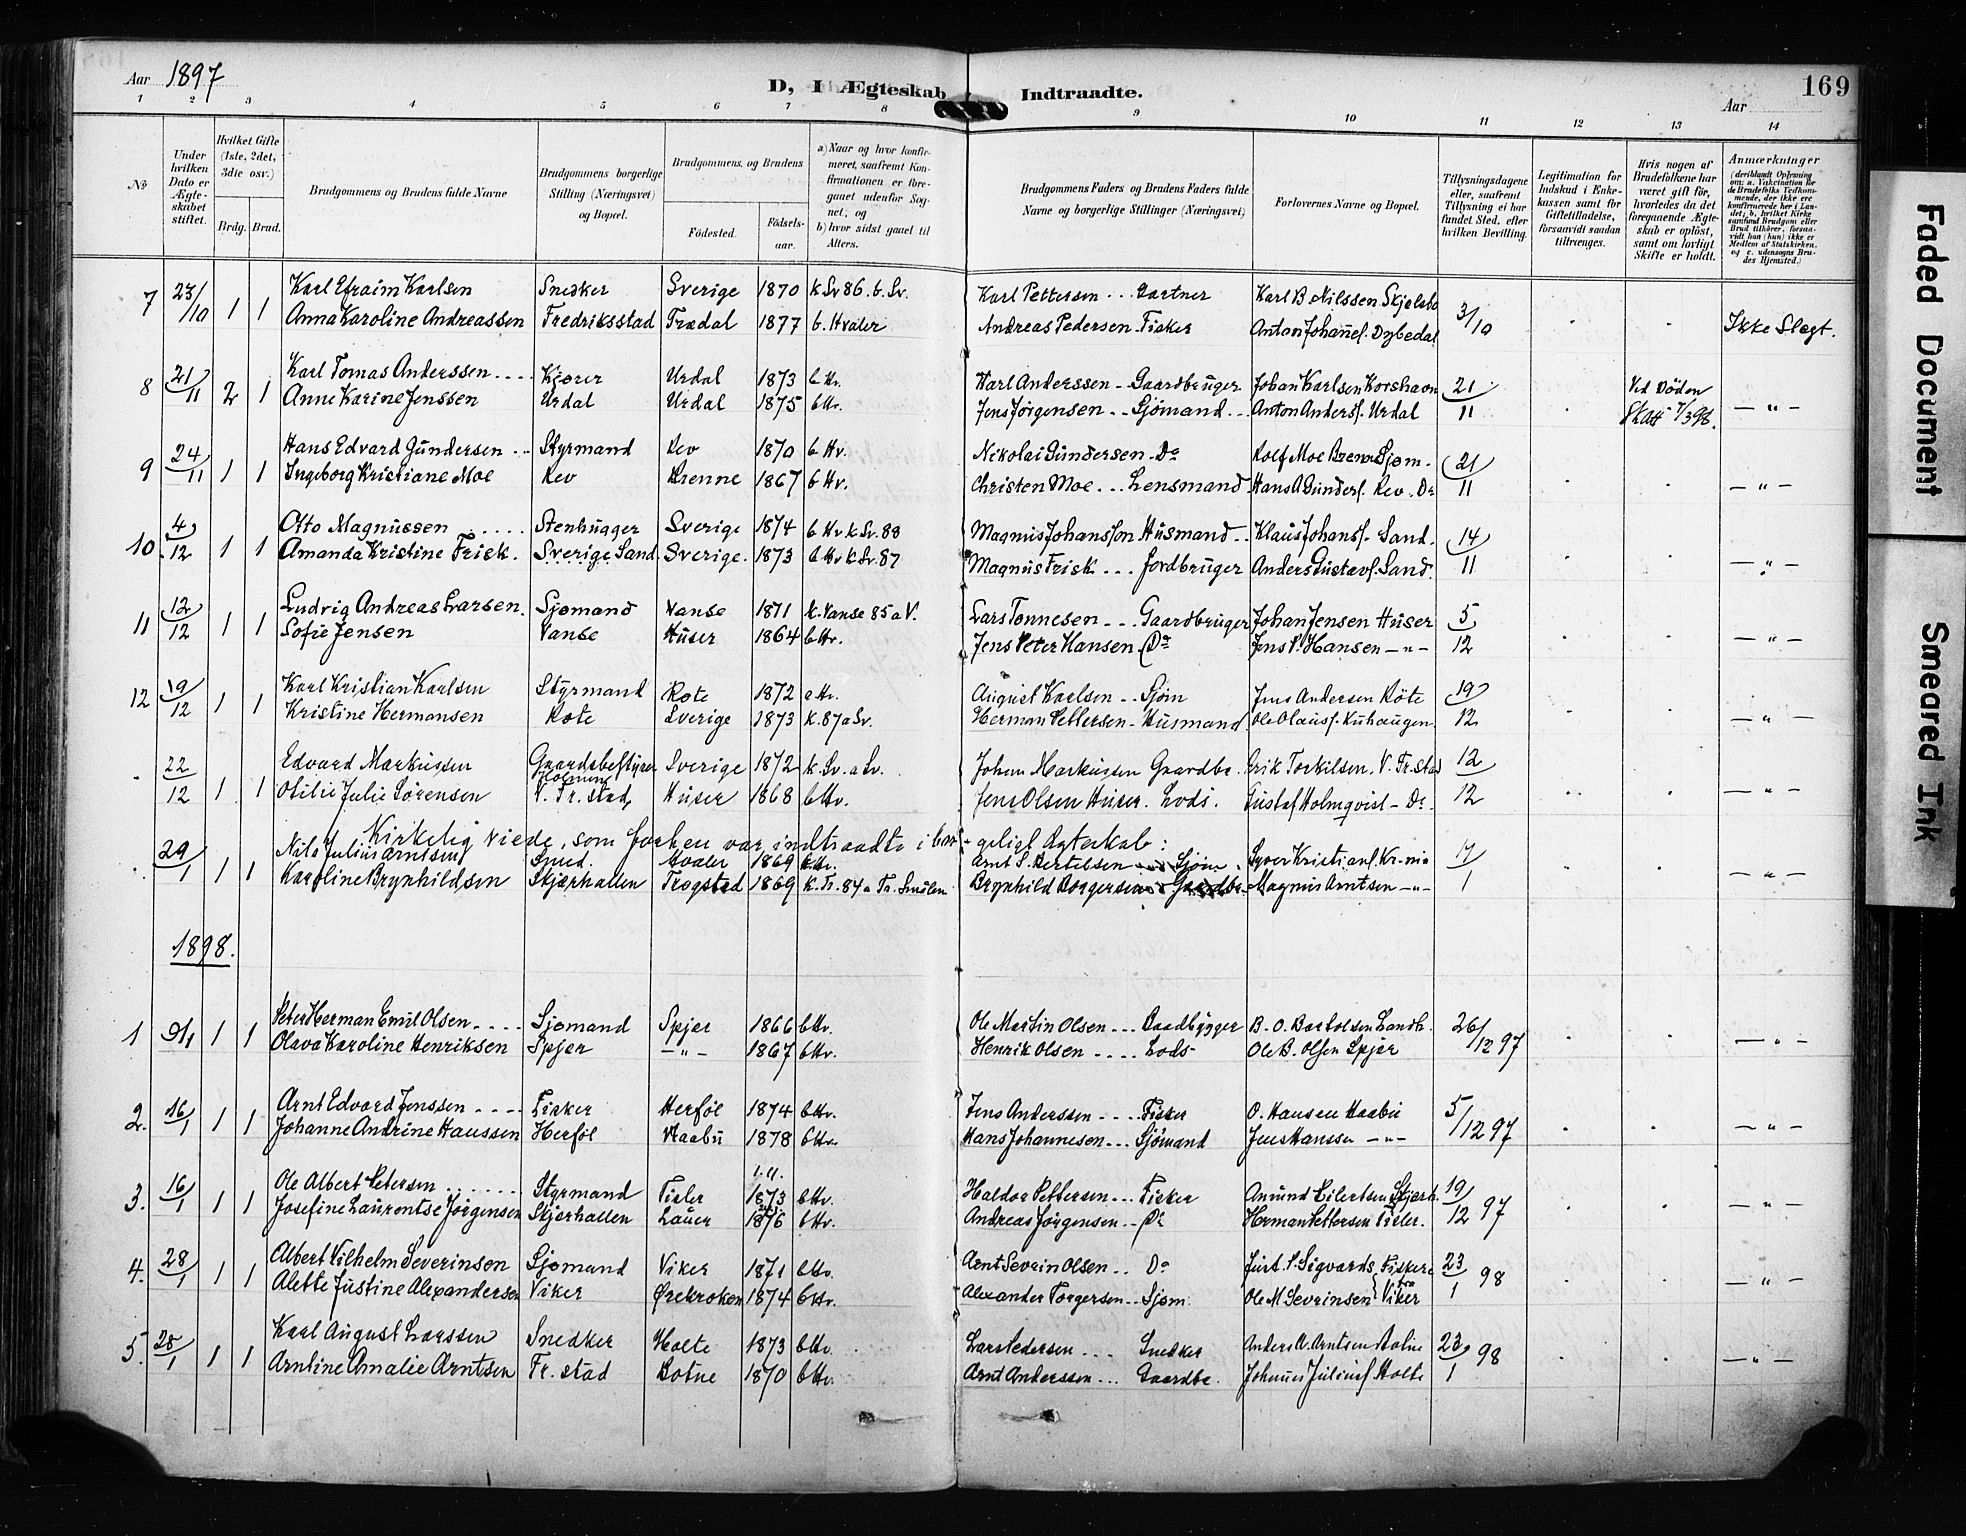 Aar 1897
D, I Ægteskab Indtraadte.
169
Aar
1 2 3 4 5 6 7 8 9 10 11 12 13 14
No
Under hvilken Dato er Ægteskabet stiftet.
Hvilket Gifte (1ste, 2det, 3die osv.)
Brdg. Brud.
Brudgommens og Brudens fulde Navne
Brudgommens borgerlige Stilling (Næringsvei) og Bopæl.
Brudgommens og Brudens
Födested. Födselsaar.
a) Naar og hvor konfirmeret, saafremt Konfirmationen er foregaaet udenfor Sognet, og
b) hvor sidst gaaet til Alters.
Brudgommens Faders og Brudens Faders fulde Navne og borgerlige Stillinger (Næringsvei)
Forlovernes Navne og Bopæl.
Tillysningsdagene eller, saafremt Tillysning ei har fundet Sted, efter hvilken Bevilling.
Legitimation for Indskud i Enkekassen samt for Giftetilladelse, forsaavidt saadan tiltrænges.
Hvis nogen af Brudefolkene har været gift för, hvorledes da det foregaaende Ægteskab er oplöst, samt om lovligt Skifte er holdt.
Anmærkninger
7 23/10 1 1 Karl Efraim Karlsen Snedker Sverige 1870 k Sv 86. b. Sv. Karl Pettersen Gartner Karl B. Nilssen 3/10
Anna Karoline Andreassen Fredriksstad Trædal 1877 b. Hvaler Andreas Pedersen Fisker Anton Johanes. Dybedal Ikke Slegt.
8 21/11 2 1 Karl Tomas Anderssen Urdal 1873 b Hv. Karl Anderssen Gaardbruger Johan Karlsen Korshavn 21/11 Ved Döden
Anne Karine Jenssen Urdal Urdal 1875 b Hv. Jens Jörgensen Sjömand Anton Anders. Urdal 7/3 98. — " —
9 24/11 1 1 Hans Edvard Gundersen Styrmand Rev 1870 b Hv. Nikolai Gundersen Do Rolf Moe Brenne Sjom. 21/11
Ingeborg Kristiane Moe Rev Brenne 1867 b Hv. Christen Moe Lensmand Hans A Gunders. Rev. Do — " —
10 4/12 1 1 Otto Magnussen Stenhugger Sverige 1874 b Hv k Sv. 88 Magnus Johansson Husmand Klaus Johans. Sand. 14/11
Amanda Kristine Frisk. Sverige Sand Sverige. 1873 b Hv k Sv. 87 Magnus Frisk Jordbruger Anders Gustavs. Sand. — " —
11 12/12 1 1 Ludvig Andreas Larsen. Sjomand Vanse 1871 k. Vanse 85 a V. Lars Tonnesen Gaardbruger Johan Jensen Huser 5/12
Sofie Jensen Vanse Huser 1864 b Hv. Jens Peter Hansen Do Jens P. Hansen — " — — " —
12 19/12 1 1 Karl Kristian Karlsen Styrmand Rote 1872 a Hv. August Karlsen Sjöm Jens Andersen Röte 19/12
Kristine Hermansen Rote Sverige 1873 k. 87 a Sv. Herman Pettersen Husmand Ole Olaus. Kuhaugen — " —
22/12 1 1 Edvard Markussen Gaardsbestyrer Sverige 1872 k. Sv. a Sv. Johan Markussen Gaardbr. Erik Torkilsen, V. Fr.stad 12/12
Otilie Julie Sörensen Holmene V. Fr. stad Huser 1868 b Hv. Jens Olsen Huser. Lods. Gustaf Holmqvist Do. — " —
Kirkelig viede, som forhen var indtraadte i borgerligt Ægteskab:
29/1 1 1 Nils Julius Arntsen Smed. Hvaler 1869 b Hv. Arnt S. Bertelsen Sjöm. Syver Kristians. Kr-nia 17/1
Karoline Brynhildsen Skjærhallen Trogstad 1869 k. Tr. 84 a Tr. Brynhild Borgersen Gaardbr. Magnus Arntsen — " — — " —
1898.
1 9/1 1 1 Peter Herman Emil Olsen Sjomand Spjær 1866 b Hv. Ole Martin Olsen Baadbygger B. O. Bartolsen 26/12 97
Olava Karoline Henriksen Spjær — " — 1867 b Hv. Henrik Olsen Lods Ole B. Olsen Spjær — " —
2. 16/1 1 1 Arnt Edvard Jenssen Fisker Herföl 1874 b Hv. Jens Anderssen Fisker O. Hansen Haabu 5/12 97
Johanne Andrine Haussen Herföl Haabu 1878 b Hv. Hans Johannesen Sjömand Jens Hanssen — " — — " —
3. 16/1 1 1 Ole Albert Petersen Styrmand Tisler 1873 b Hv. Haldor Pettersen Fisker Amund Eilertsen 19/12 97
Josefine Laurentse Jörgensen Skjærhallen Lauer 1876 b Hv. Andreas Jörgensen Do Herman Pettersen Tisler. — " —
4. 28/1 1 1 Albert Vilhelm Severinsen Sjomand Viker 1871 b Hv. Arnt Severin Olsen Do Sigvards. Fiskere 23/1 98
Alette Justine Alexandersen Viker Ørekroken 1874 b Hv. Alexander Torgersen Sjom. Ole M Sevrinsen fra Viker — " —
5. 28/1 1 1 Karl August Larssen Snedker Holte 1873 b Hv. Lars Pedersen Snedker Anders A. Arntsen 23/1 98
Arntine Amalie Arntsen Fr. stad Botne 1870 b Hv. Arnt Anderssen Gaardbr. Johannes Julius. Holte — " —
Faded Document
Smeared Ink